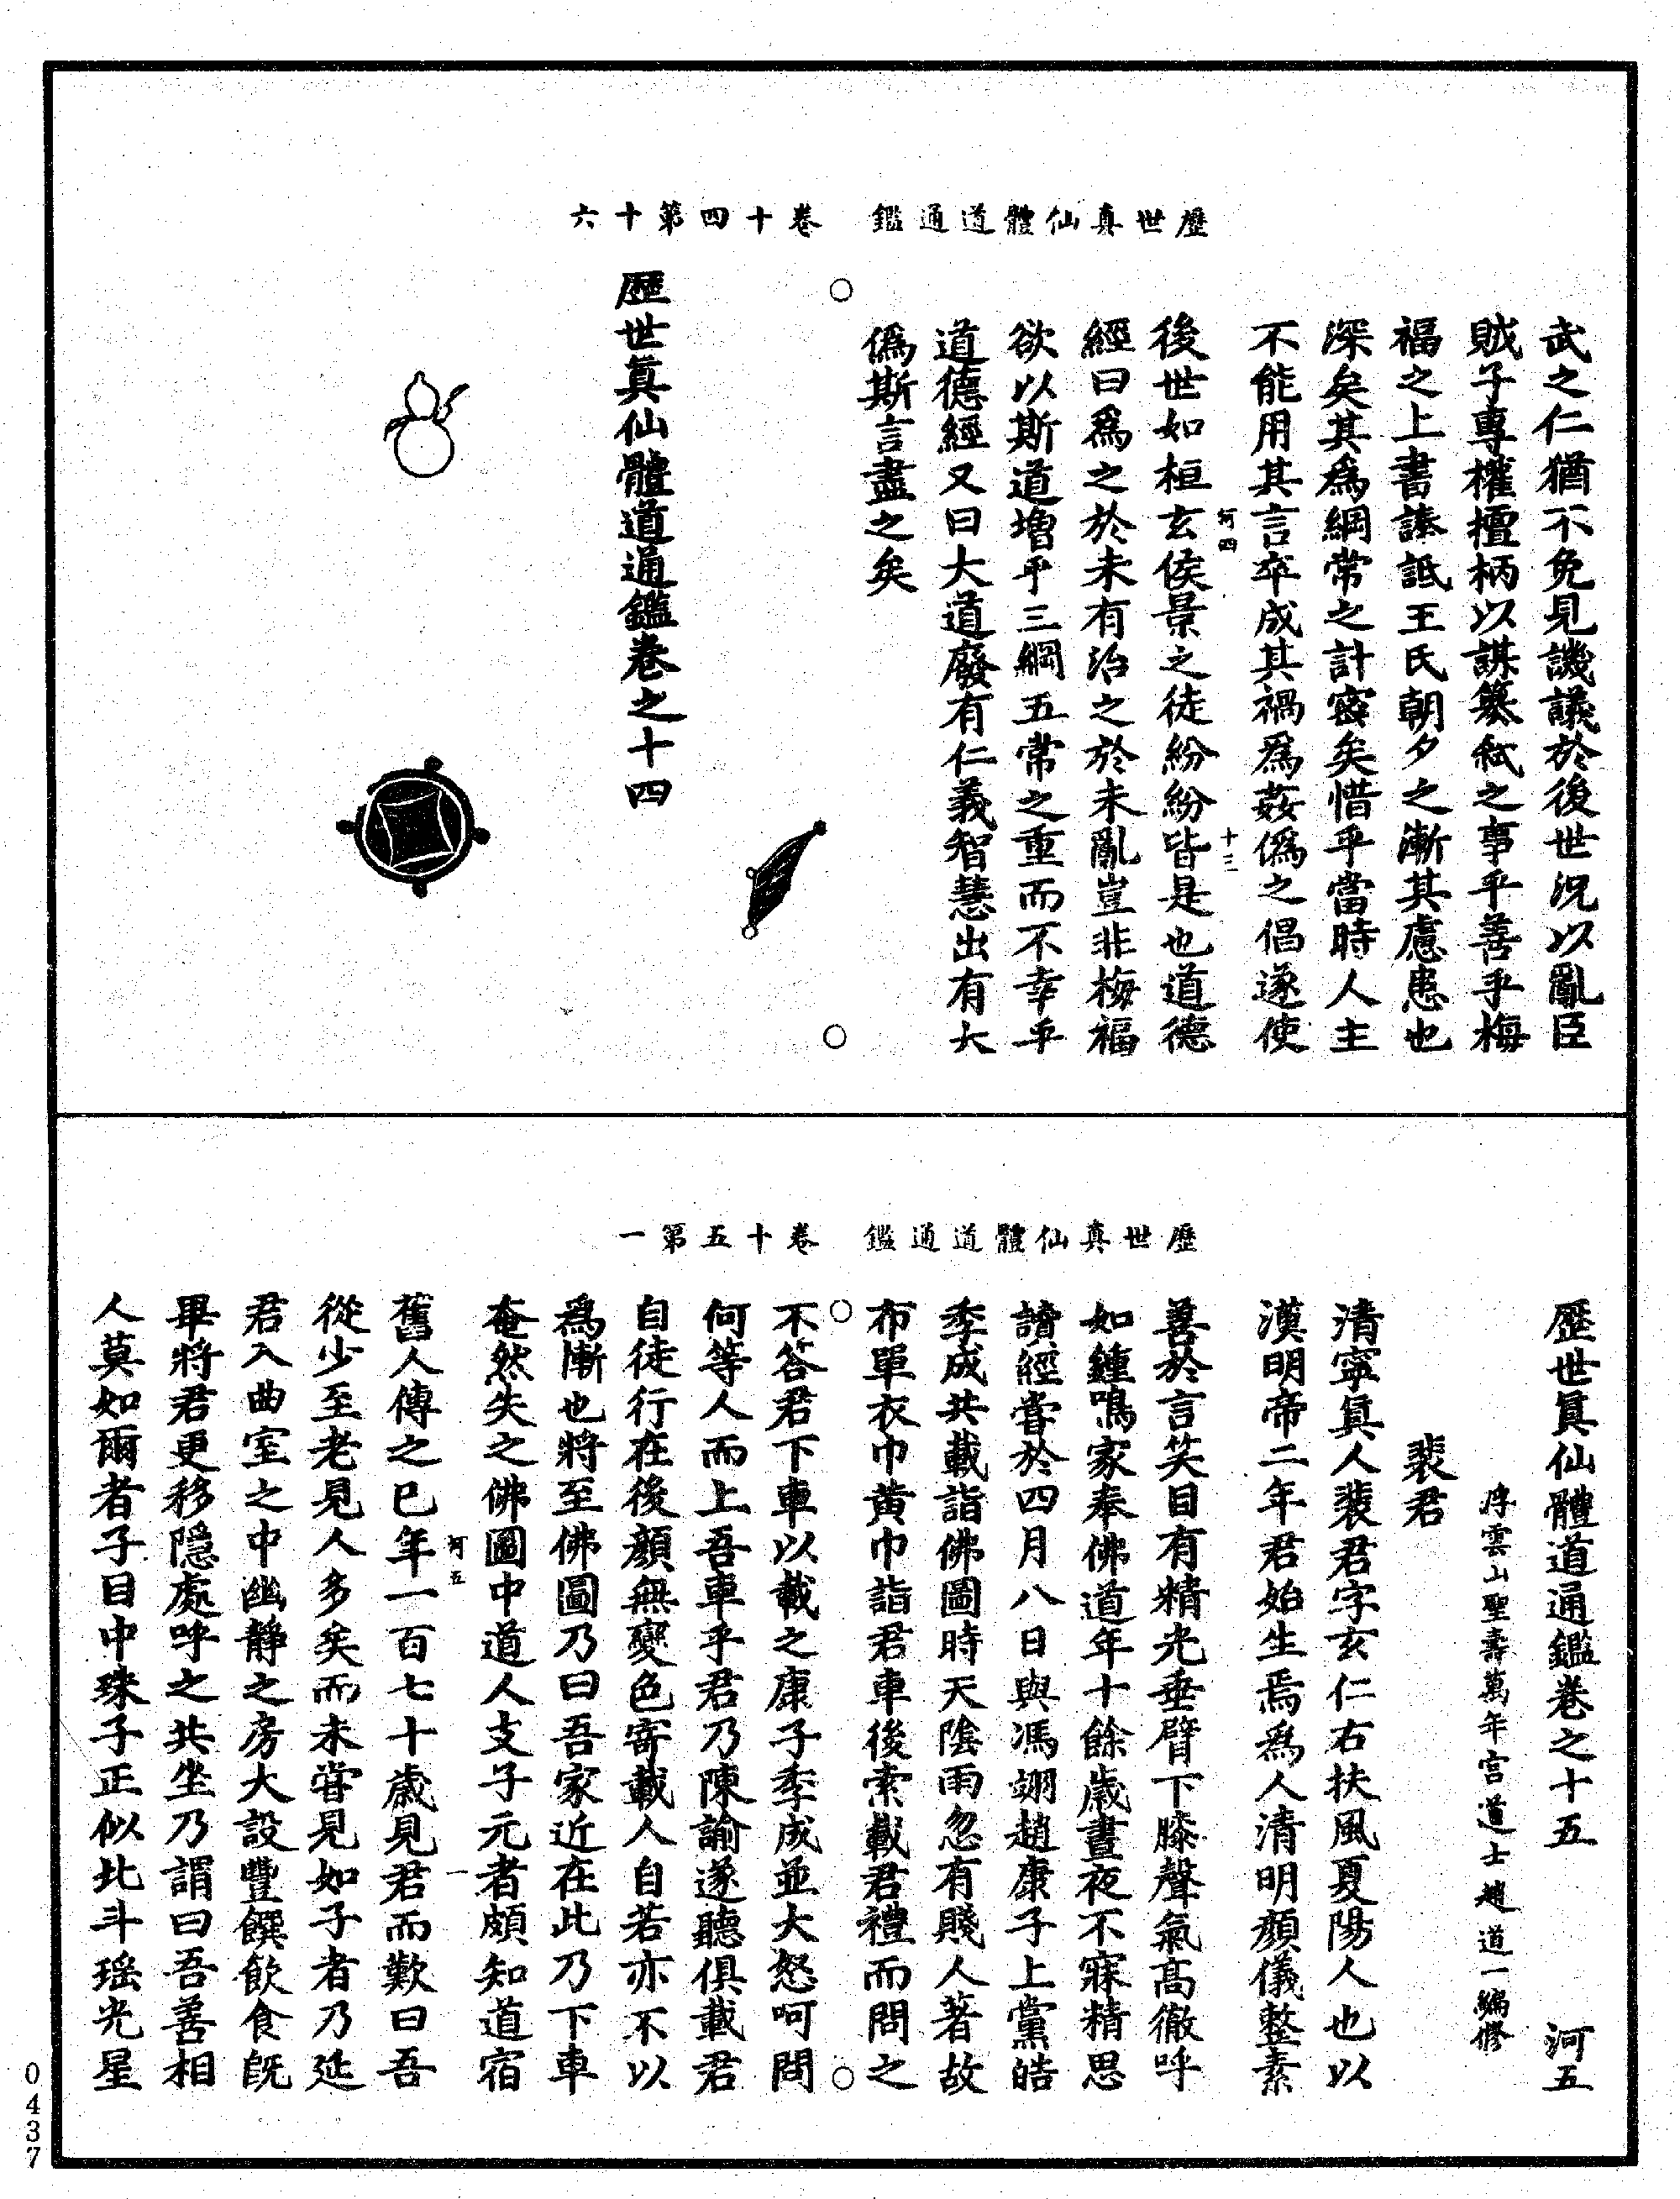 歷世真仙體道通鑑　卷十四第十六
武之仁猶不免見譏議於後世況以亂臣
賊子專權擅柄以謀篡弒之事乎善乎梅
福之上書諫詆王氏朝夕之漸其慮患也
深矣其為綱常之計密矣惜乎當時人主
不能用其言卒成其禍為姦偽之倡遂使
河四
十三
後世如桓玄侯景之徒紛紛皆是也道德
經曰為之於未有治之於未亂豈非梅福
欲以斯道增乎三綱五常之重而不幸乎
道德經又曰大道廢有仁義智慧出有大
偽斯言盡之矣
歷世真仙體道通鑑卷之十四
歷世真仙體道通鑑　卷十五第一
歷世真仙體道通鑑卷之十五　河五
浮雲山聖壽萬年宮道士趙道一編修
裴君
清寧真人裴君字玄仁右扶風夏陽人也以
漢明帝二年君始生焉為人清明顏儀整素
善於言笑目有精光垂臂下膝聲氣高徹呼
如鍾鳴家奉佛道年十餘歲晝夜不寐精思
讀經嘗於四月八日與馮翊趙康子上黨皓
季成共載詣佛圖時天陰雨忽有賤人著故
布單衣巾黃巾詣君車後索載君禮而問之
不答君下車以載之康子季成並大怒呵問
何等人而上吾車乎君乃陳諭遂聽俱載君
自徒行在後顏無變色寄載人自若亦不以
為慚也將至佛圖乃曰吾家近在此乃下車
奄然失之佛圖中道人支子元者頗知道宿
河五
一
舊人傳之已年一百七十歲見君而歎曰吾
從少至老見人多矣而未嘗見如子者乃延
君入曲室之中幽靜之房大設豐饌飲食既
畢將君更移隱處呼之共坐乃謂曰吾善相
人莫如爾者子目中珠子正似北斗瑶光星
0437